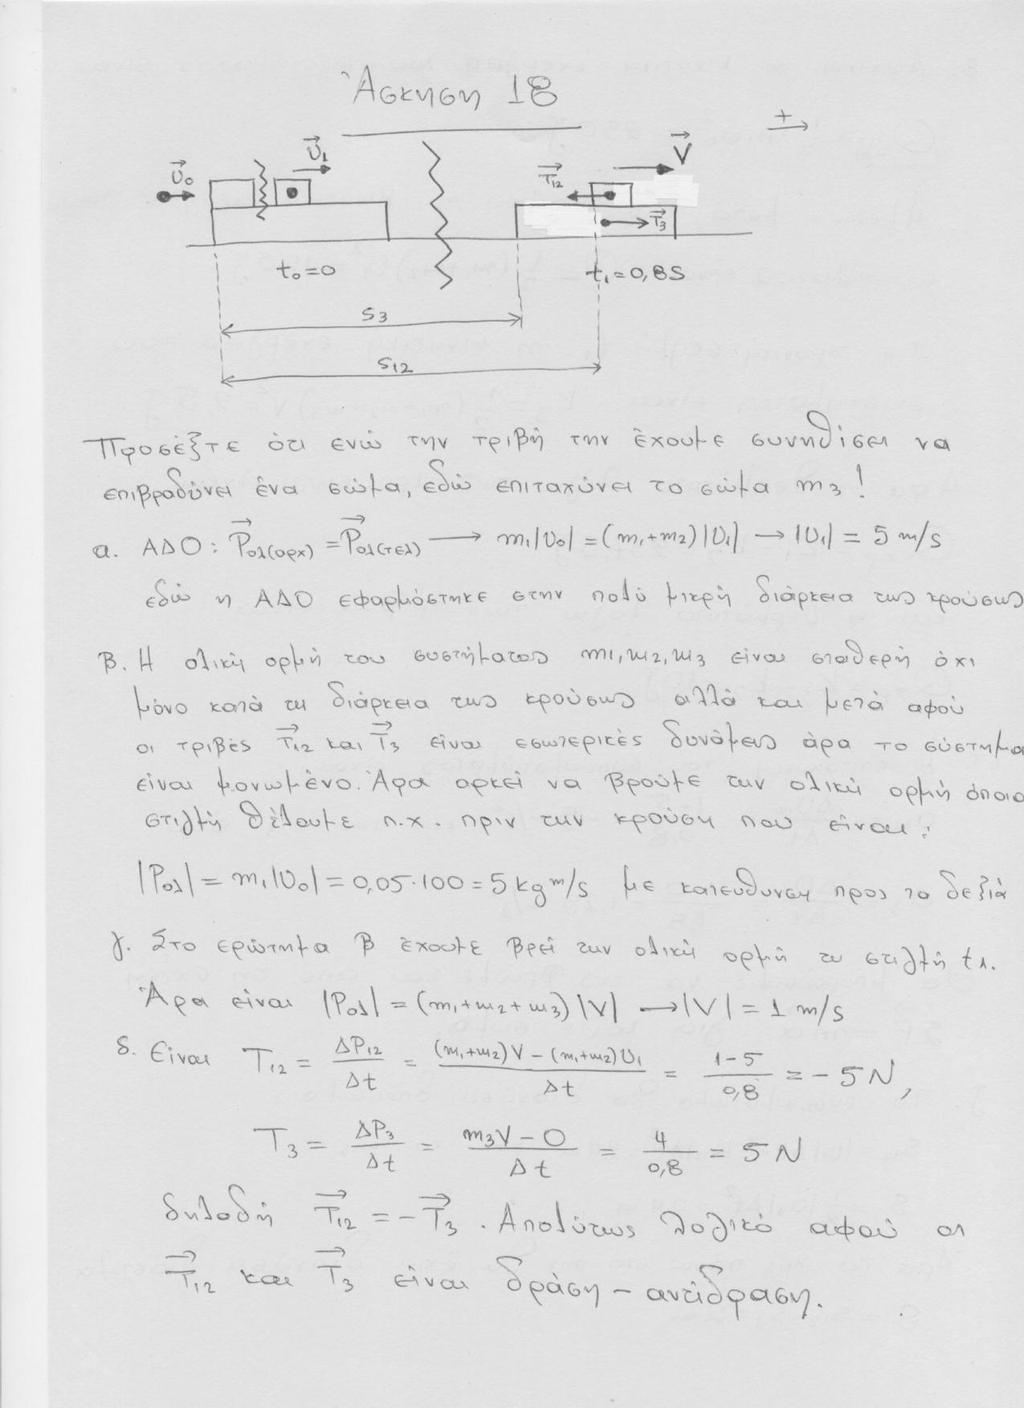 Άσκηση 18
+
υ₀ υ₁ T₁₂ V
T₃
t₀=0 t₁=0,8s
S₃
S₁₂
Προσέξτε ότι ενώ την τριβή την έχουμε συνηθίσει να
επιβραδύνει ένα σώμα, εδώ επιταχύνει το σώμα m₃!
α. ΑΔΟ: P⃗ολ(αρχ) = P⃗ολ(τελ) → m₁|υ₀| = (m₁+m₂)|υ₁| → |υ₁| = 5 m/s
εδώ η ΑΔΟ εφαρμόστηκε στην πολύ μικρή διάρκεια της κρούσης
β. Η ολική ορμή του συστήματος m₁,m₂,m₃ είναι σταθερή όχι
μόνο κατά τη διάρκεια της κρούσης αλλά και μετά αφού
οι τριβές T⃗₁₂ και T⃗₃ είναι εσωτερικές δυνάμεις άρα το σύστημα
είναι μονωμένο. Άρα αρκεί να βρούμε την ολική ορμή όποια
στιγμή θέλουμε π.χ. πριν την κρούση που είναι:
|Pολ| = m₁|υ₀| = 0,05·100 = 5 kg m/s με κατεύθυνση προς τα δεξιά
γ. Στο ερώτημα β έχουμε βρεί την ολική ορμή τη στιγμή t₁.
Άρα είναι |Pολ| = (m₁+m₂+m₃)|V| → |V| = 1 m/s
δ. Είναι T₁₂ = ΔP₁₂/Δt = ((m₁+m₂)V − (m₁+m₂)υ₁)/Δt = (1−5)/0,8 = −5N,
T₃ = ΔP₃/Δt = (m₃V − 0)/Δt = 4/0,8 = 5N
δηλαδή T⃗₁₂ = −T⃗₃. Απολύτως λογικό αφού οι
T⃗₁₂ και T⃗₃ είναι δράση – αντίδραση.